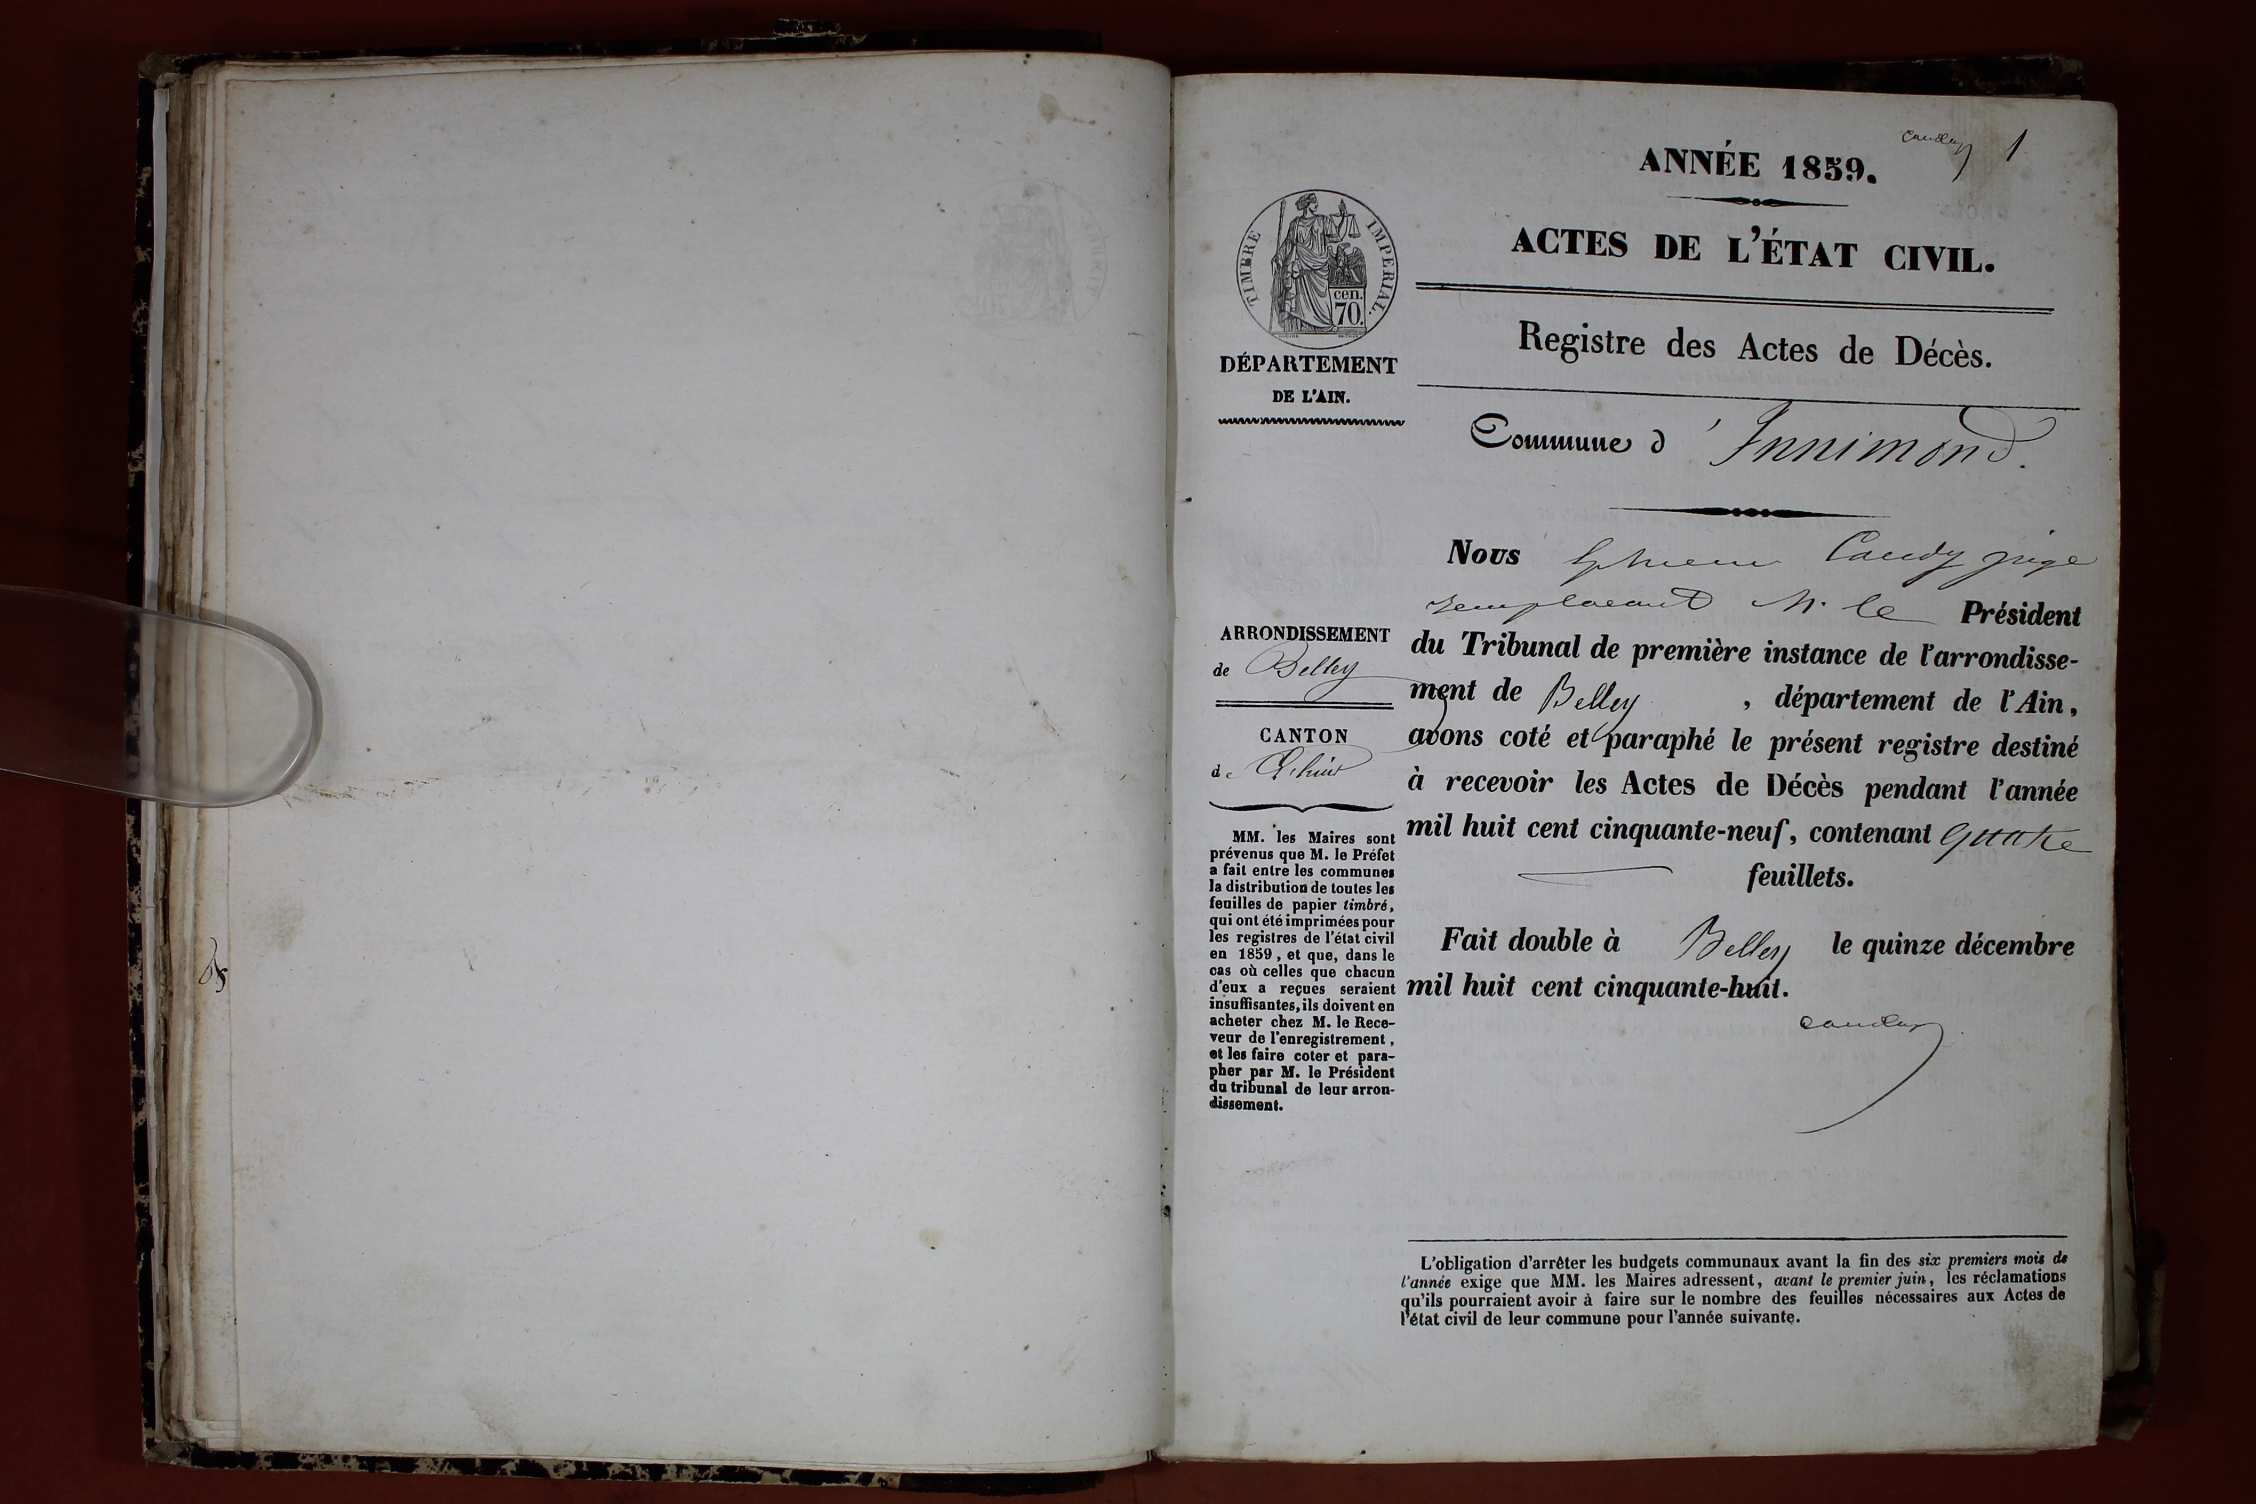 Caudy 1
ANNÉE 1859.
ACTES DE L'ÉTAT CIVIL.
TIMBRE IMPERIAL.
cen.
70.
DÉPARTEMENT
DE L'AIN.
Registre des Actes de Décès.
Commune d'Innimond.
Nous Caudy juge
remplacant M. le Président
du Tribunal de première instance de l'arrondisse-
ment de Belley, département de l'Ain,
avons coté et paraphé le présent registre destiné
à recevoir les Actes de Décès pendant l'année
mil huit cent cinquante-neuf, contenant quatre
feuillets.
Fait double à Belley le quinze décembre
mil huit cent cinquante-huit.
Caudy
ARRONDISSEMENT
de Belley
CANTON
de
MM. les Maires sont
prévenus que M. le Préfet
a fait entre les communes
la distribution de toutes les
feuilles de papier timbré,
qui ont été imprimées pour
les registres de l'état civil
en 1859, et que, dans le
cas où celles que chacun
d'eux a reçues seraient
insuffisantes, ils doivent en
acheter chez M. le Rece-
veur de l'enregistrement,
et les faire coter et para-
pher par M. le Président
du tribunal de leur arron-
dissement.
L'obligation d'arrêter les budgets communaux avant la fin des six premiers mois de
l'année exige que MM. les Maires adressent, avant le premier juin, les réclamations
qu'ils pourraient avoir à faire sur le nombre des feuilles nécessaires aux Actes de
l'état civil de leur commune pour l'année suivante.